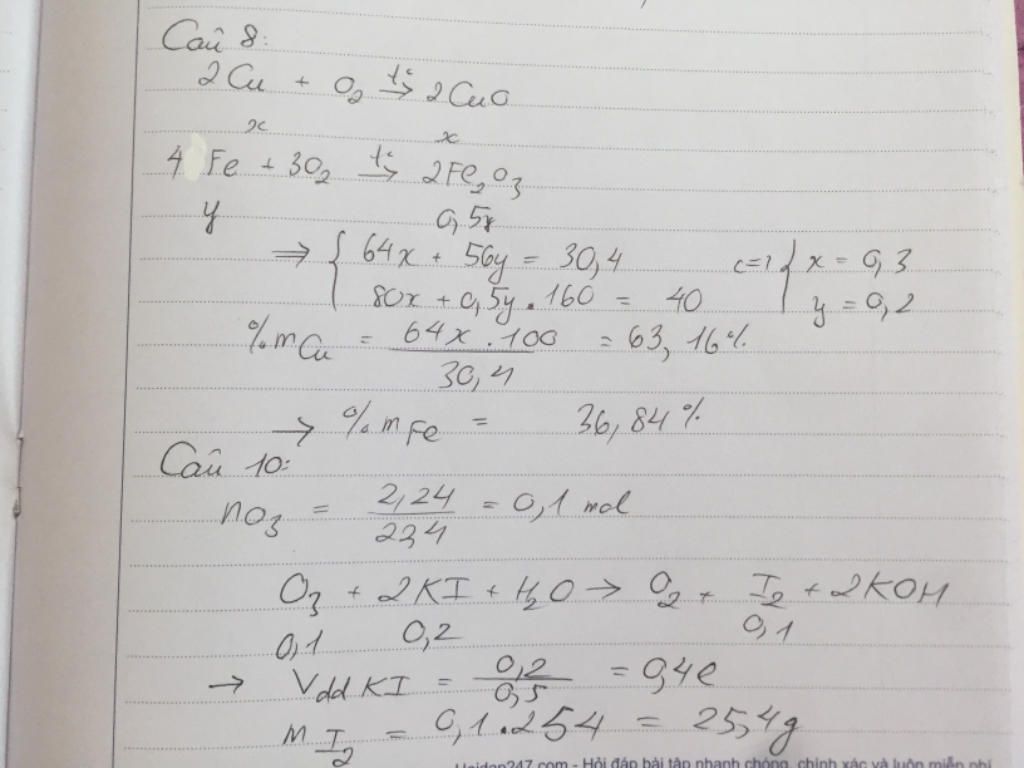 Câu 8:
2Cu + O₂ t°→ 2CuO
x x
4 Fe + 3O₂ t°→ 2Fe₂O₃
y 0,5x
⇒ { 64x + 56y = 30,4 <=> { x = 0,3
80x + 0,5y . 160 = 40 y = 0,2
%mCu = 64x . 100 / 30,4 = 63,16%
→ %mFe = 36,84%
Câu 10:
nO₃ = 2,24 / 22,4 = 0,1 mol
O₃ + 2KI + H₂O → O₂ + I₂ + 2KOH
0,1 0,2 0,1
→ Vdd KI = 0,2 / 0,5 = 0,4l
mI₂ = 0,1 . 254 = 25,4g
Hoidap247.com - Hỏi đáp bài tập nhanh chóng, chính xác và luôn miễn phí